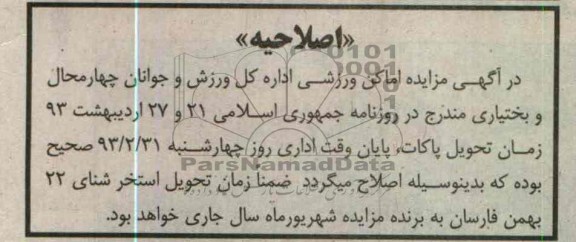 «اصلاحیه»
در آگهـی مزایده اماکن ورزشـی اداره کل ورزش و جوانان چهارمحال
و بختیاری مندرج در روزنامه جمهوری اسـلامی ۲۱ و ۲۷ اردیبهشت ۹۳
زمـان تحویل پاکات، پایان وقت اداری روز چهارشـنبه ۹۳/۲/۳۱ صحیح
بوده که بدینوسـیله اصلاح میگردد ضمناً زمان تحویل استخر شنای ۲۲
بهمن فارسان به برنده مزایده شهریورماه سال جاری خواهد بود.
ParsNamadData